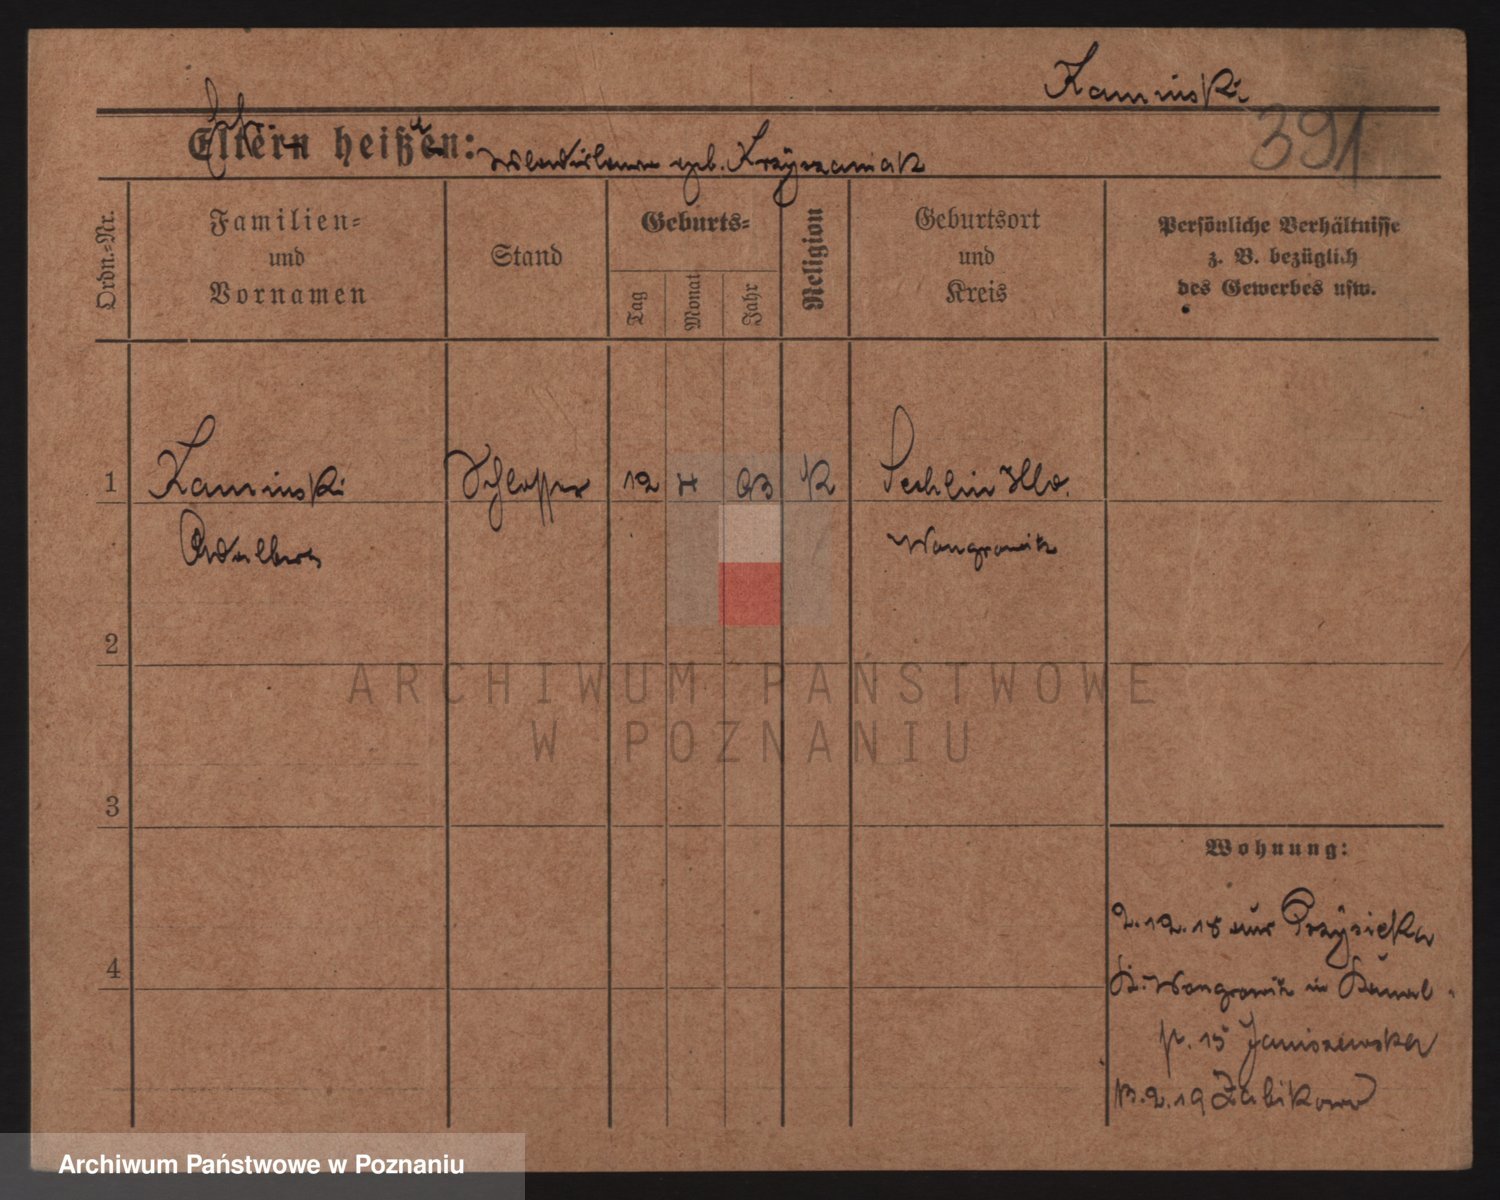 Kaminski
391
Eltern heißen: geb. Krzyżaniak
Ordn.-Nr.
Familien-
und
Vornamen
Stand
Geburts-
Tag
Monat
Jahr
Religion
Geburtsort
und
Kreis
Persönliche Verhältnisse
z. B. bezüglich
des Gewerbes usw.
1 Kaminski Schlosser 12 4 93 K
Adalbert Wongrowitz
2
ARCHIWUM PAŃSTWOWE
W POZNANIU
3
Wohnung:
2.12.18 aus Przysieka
4
K. Wongrowitz in Kanal-
p. 15 Janiszewska
13.2.19 Zabikowo
Archiwum Państwowe w Poznaniu